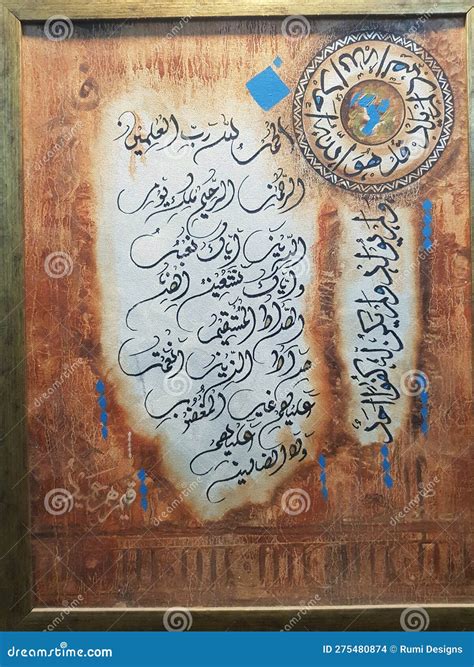 الحمد لله رب العلمين
الرحمن الرحيم ملك يوم
الدين اياك نعبد
واياك نستعين
الصراط المستقيم
صراط الذين انعمت
عليهم غير المغضوب
عليهم
ولا الضالين
قل هو الله احد الله الصمد لم يلد
ولم يولد ولم يكن له كفوا احد
dreamstime.com
ID 275480874 © Rumi Designs